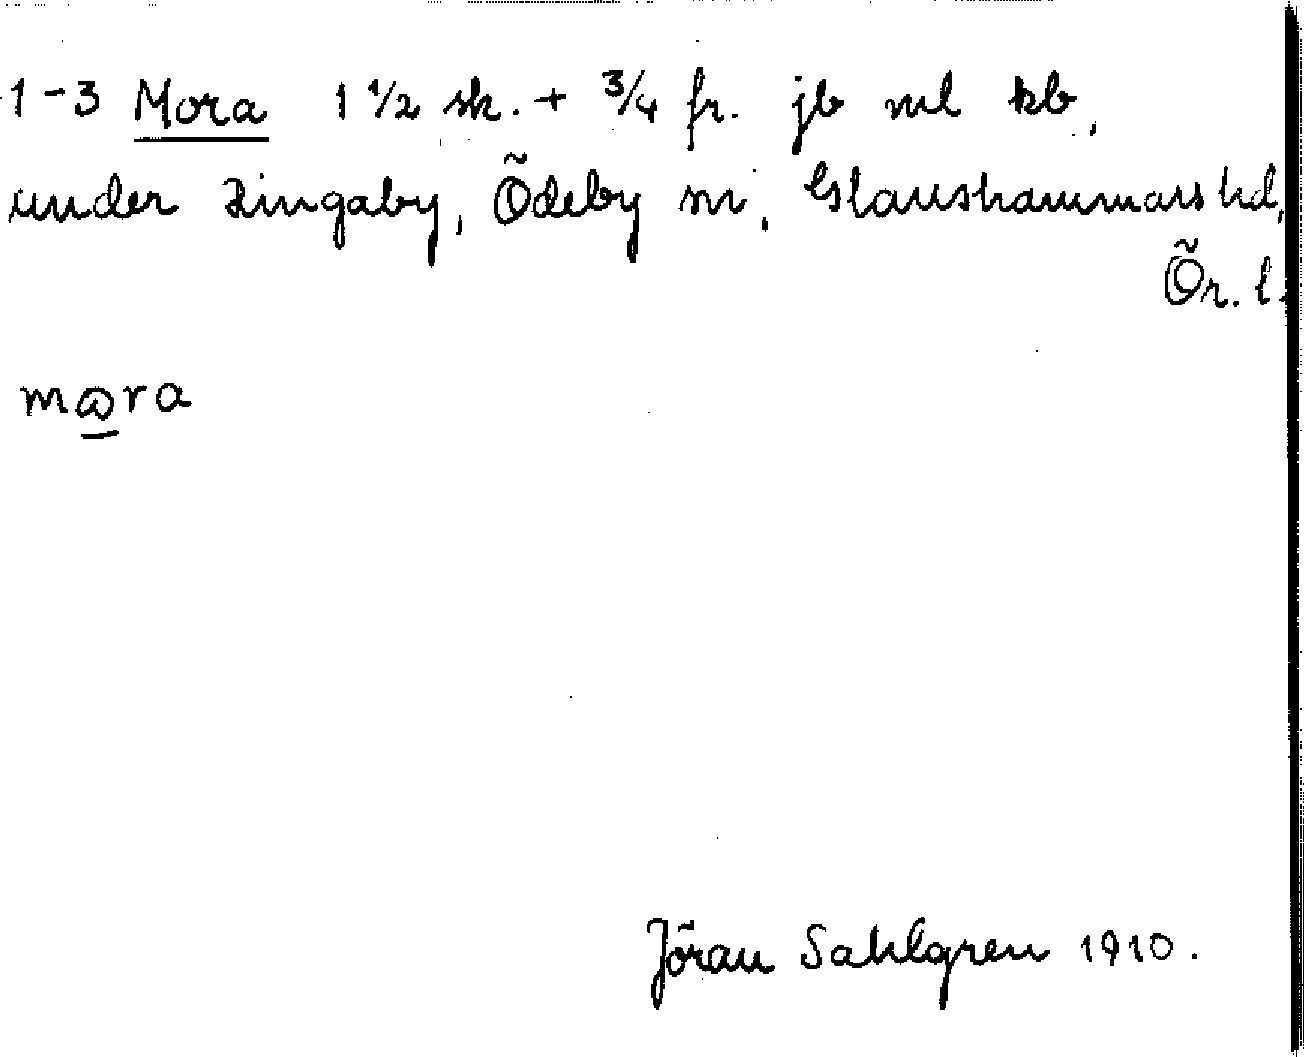 1-3 Mora 1 1/2 sk. + 3/4 fr. jb ml kb,
under Lingaby, Ödeby sn, Glanshammars hd,
Ör. l.
mɷra
Jöran Sahlgren 1910.